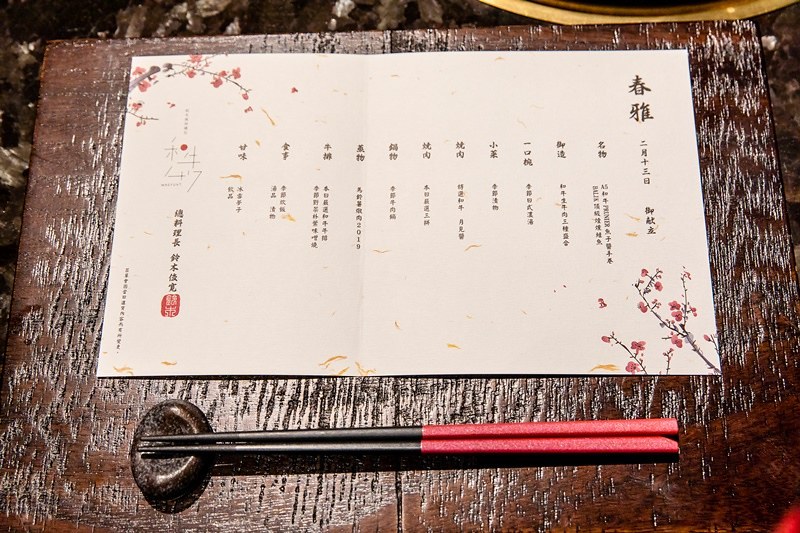 春雅
二月十三日　御献立
名物
A5和牛PRUNIER魚子醬手卷
BALIK頂級煙燻鮭魚
御造
和牛生牛肉三種盛合
一口椀
季節日式濃湯
小菜
季節漬物
燒肉
精選和牛　月見醬
燒肉
本日嚴選三拼
鍋物
季節牛肉鍋
蒸物
馬鈴薯燉肉2019
牛排
本日嚴選和牛牛排
食事
季節炊飯
湯品　漬物
甘味
冰菓子
飲品
總料理長　鈴木俊寬